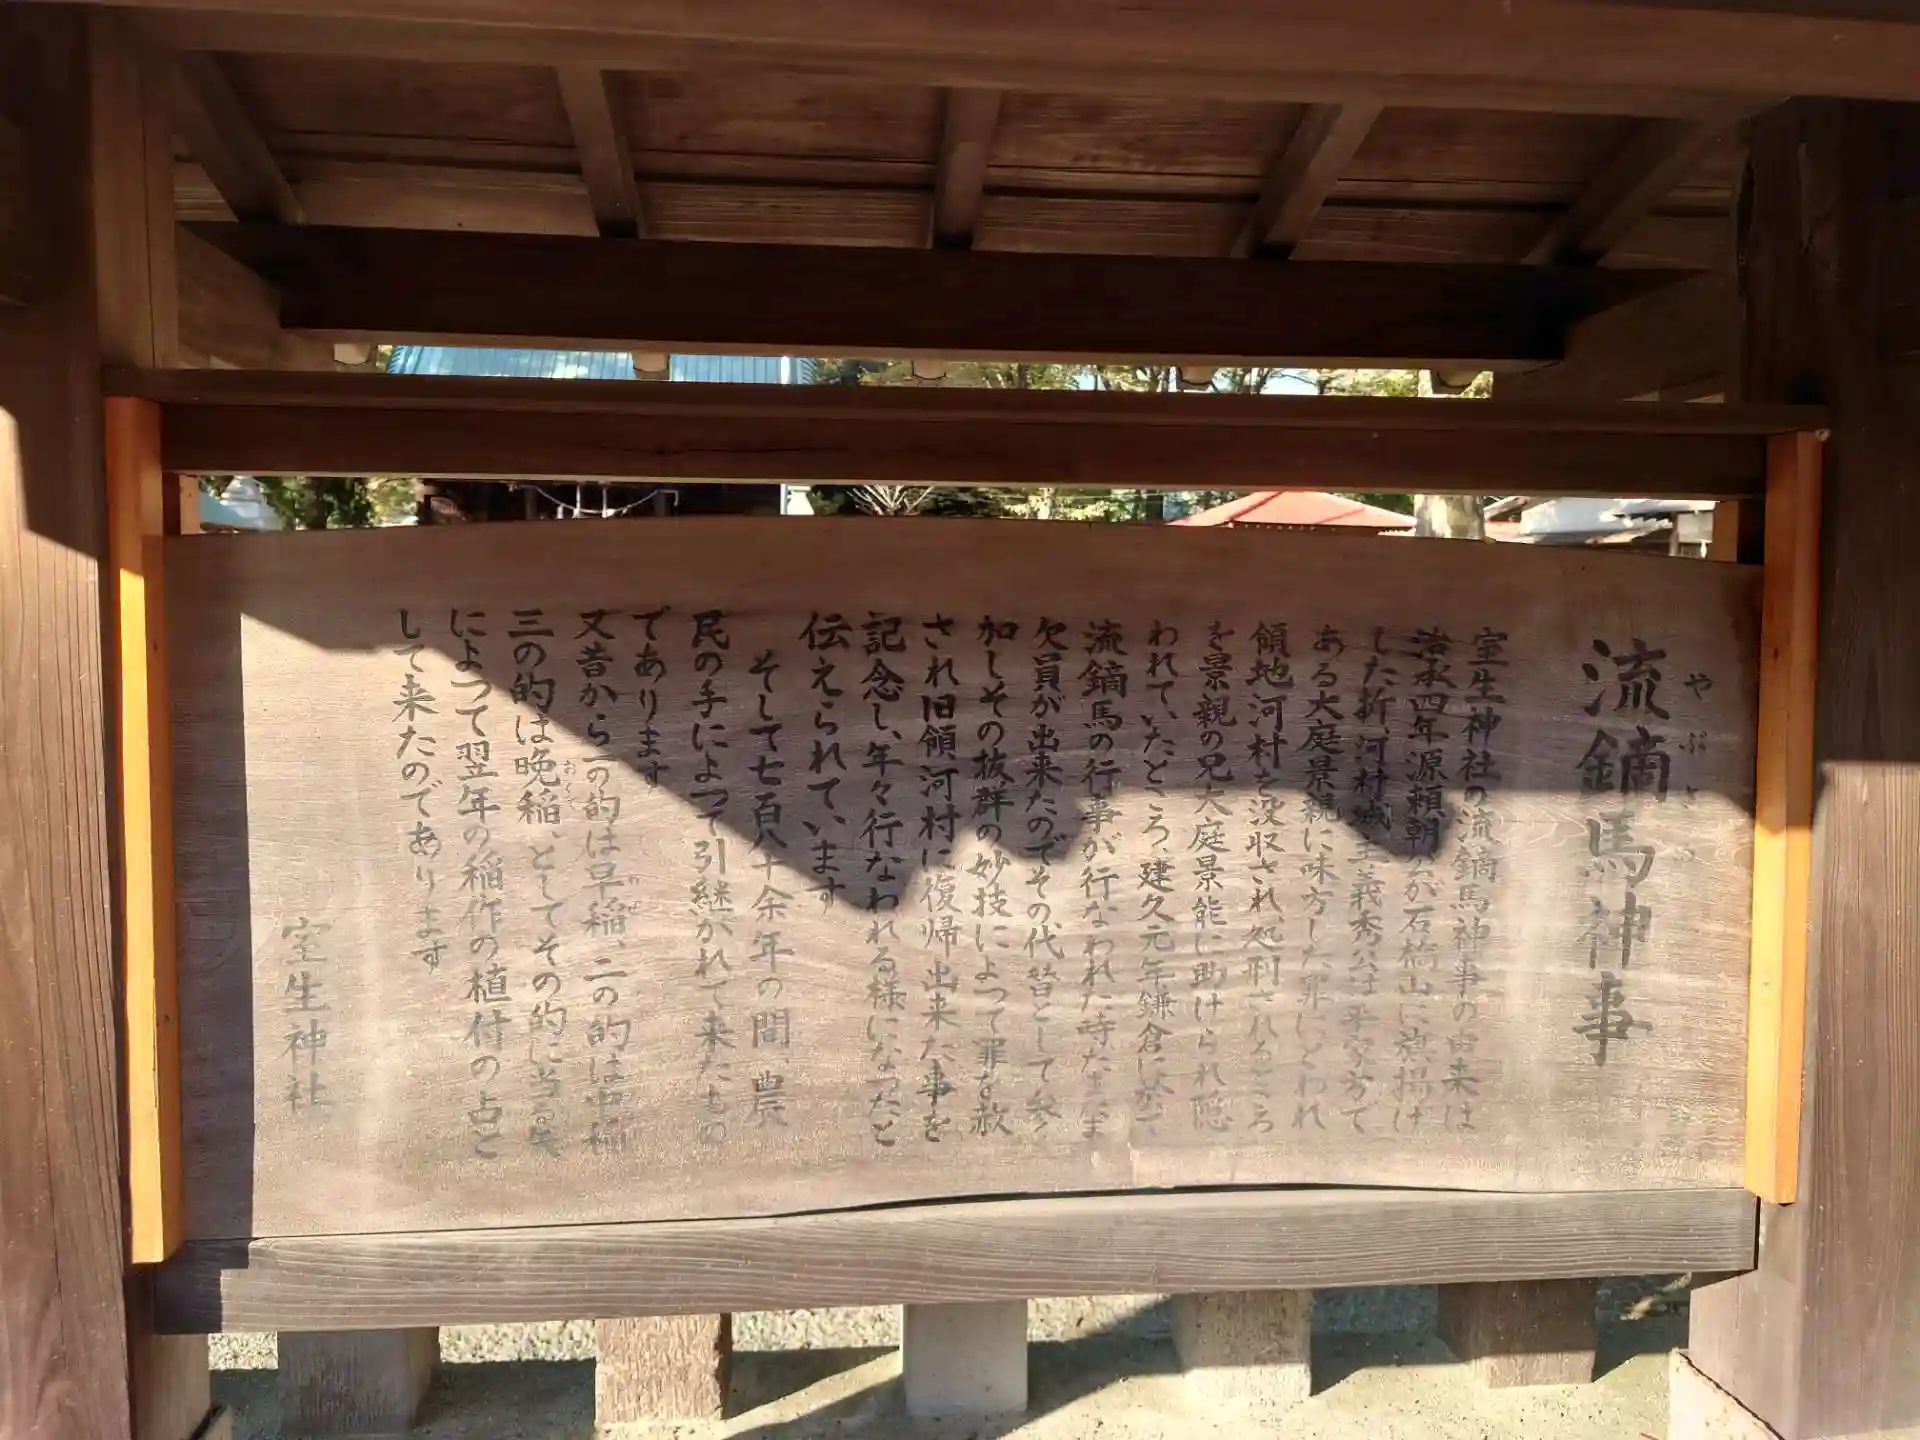 流鏑馬神事
やぶさめ
室生神社の流鏑馬神事の由来は
治承四年源頼朝公が石橋山に旗揚げ
した折、河村城主義秀公は平家方で
ある大庭景親に味方した罪にとわれ
領地河村を没収され、処刑されるところ
を景親の兄大庭景能に助けられ隠
われていたところ、建久元年鎌倉に於て
流鏑馬の行事が行なわれた時たまたま
欠員が出来たのでその代替として参
加しその抜群の妙技によって罪を赦
され旧領河村に復帰出来た事を
記念し、年々行なわれる様になったと
伝えられています
そして七百八十余年の間、農
民の手によって引継がれて来たもの
であります
又昔から一の的は早稲、二の的は中稲
わせ
三の的は晩稲、としてその的に当る矢
おくて
によって翌年の稲作の植付の占と
して来たのであります
室生神社